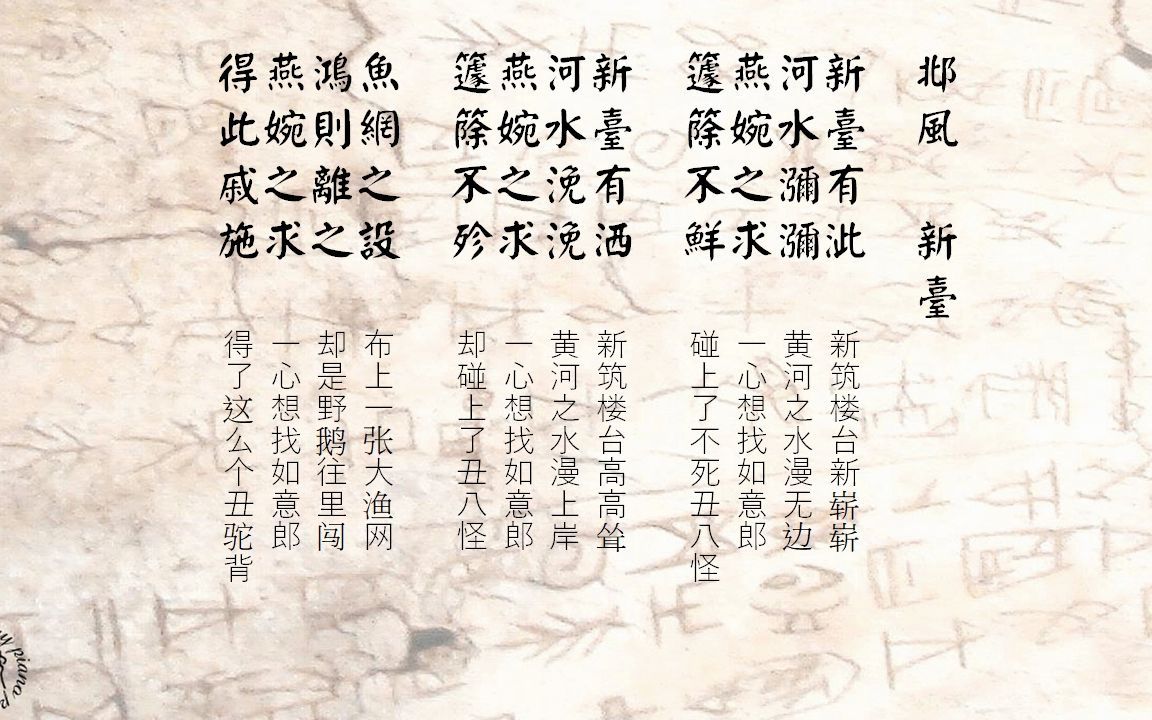 邶風 新臺
新臺有泚
河水瀰瀰
燕婉之求
籧篨不鮮
新臺有洒
河水浼浼
燕婉之求
籧篨不殄
魚網之設
鴻則離之
燕婉之求
得此戚施
新筑楼台新崭崭
黄河之水漫无边
一心想找如意郎
碰上了不死丑八怪
新筑楼台高高耸
黄河之水漫上岸
一心想找如意郎
却碰上了丑八怪
布上一张大渔网
却是野鹅往里闯
一心想找如意郎
得了这么个丑驼背
piano